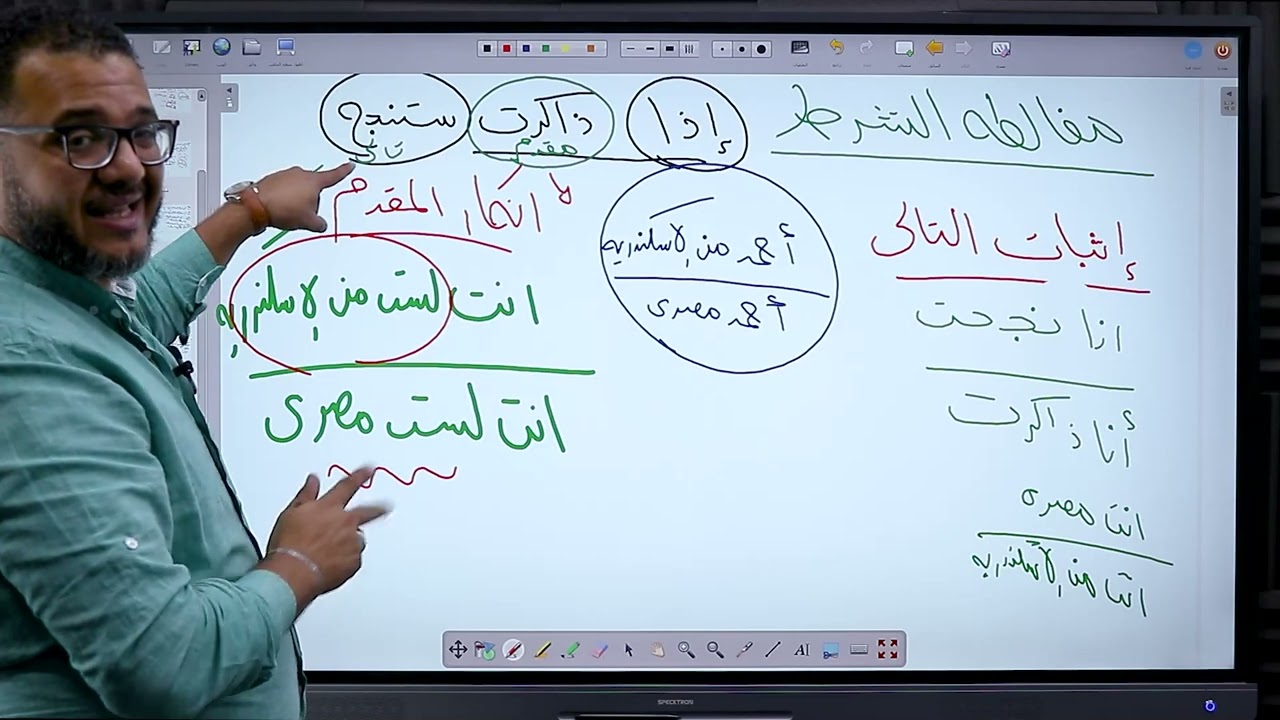 مغالطه الشرط
إذا ذاكرت ستنجح
مقدم تالى
إثبات التالى
اذا نجحت
أنا ذاكرت
انت مصرى
انت من الاسكندريه
أحمد من الاسكندريه
أحمد مصرى
لا انكار المقدم
انت لست من الاسكندريه
انت لست مصرى
AI
SPECKTRON